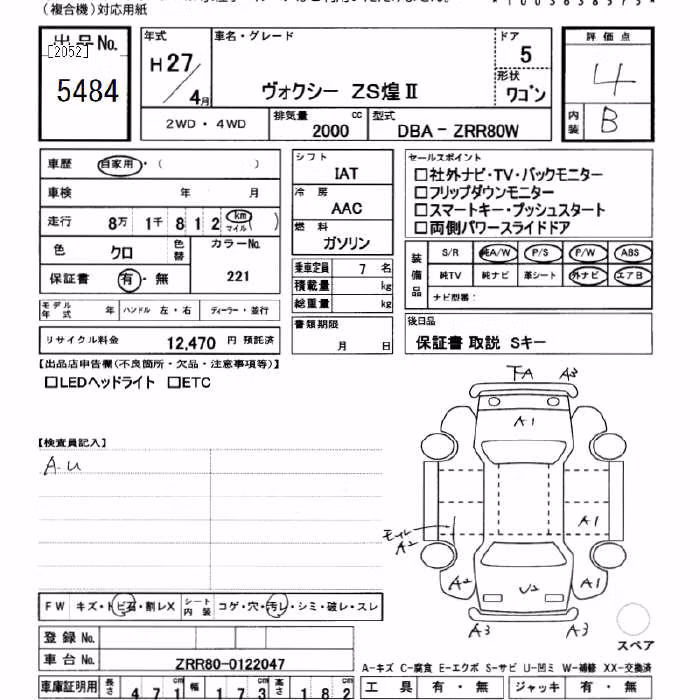 (複合機)対応用紙
出品No.
[2052]
5484
年式
H27/4月
車名・グレード
ヴォクシー ZS煌Ⅱ
ドア
5
形状
ワゴン
2WD・4WD
排気量
2000 cc
型式
DBA-ZRR80W
評価点
4
内装
B
車歴 自家用・( )
車検 年 月
走行 8万 1千 8 1 2 km マイル ( )
色 クロ 色替 カラーNo.
保証書 有・無 221
モデル年式 年 ハンドル 左・右 ディーラー・並行
リサイクル料金 12,470 円 預託済
シフト
IAT
冷房
AAC
燃料
ガソリン
乗車定員 7 名
積載量 kg
総重量 kg
書類期限
月 日
セールスポイント
□社外ナビ・TV・バックモニター
□フリップダウンモニター
□スマートキー・プッシュスタート
□両側パワースライドドア
装備品
S/R 純A/W P/S P/W ABS
純TV 純ナビ 革シート 外ナビ エアB
ナビ型番:
後日品
保証書 取説 Sキー
【出品店申告欄(不良箇所・欠品・注意事項等)】
□LEDヘッドライト □ETC
【検査員記入】
A.U
FA A3
A1
モール
A2
A1
A2
U2
A1
A3
A3
スペア
FW キズ・トビ石・割レX シート内装 コゲ・穴・汚レ・シミ・破レ・スレ
登録No.
車台No. ZRR80-0122047
A-キズ C-腐食 E-エクボ S-サビ U-凹ミ W-補修 XX-交換済
車庫証明用 長さ 471 cm 幅 173 cm 高さ 182 cm
工具 有・無 ジャッキ 有・無